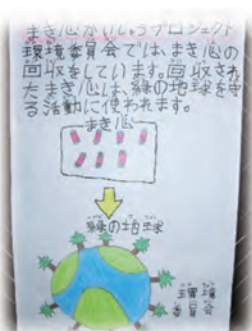 まき心かいしゅうプロジェクト
環境委員会では、まき心の
回収をしています。回収され
たまき心は、緑の地球を守
る活動に使われます。
まき心
緑の地球
環境
委員会